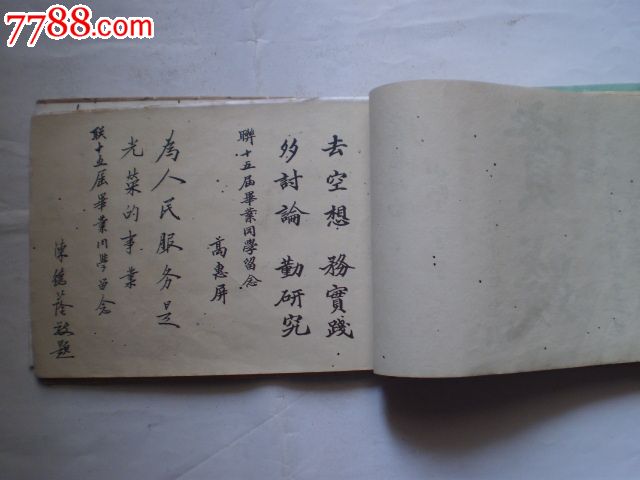 7788.com
去空想 務實踐
多討論 勤研究
聯十五屆畢業同學留念
高惠屏
為人民服务是
光榮的事業
联十五屆畢業同學留念
陳德蔭敬題